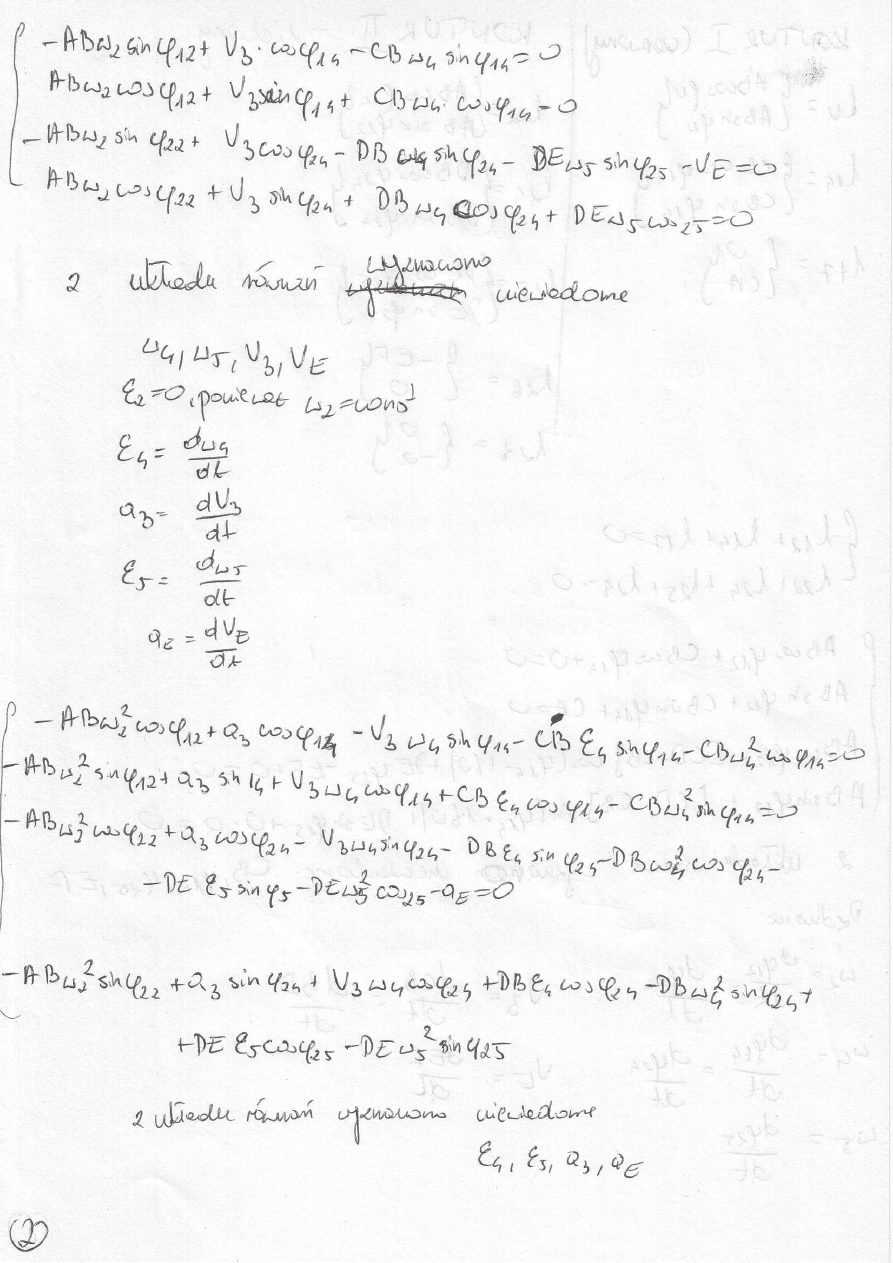 -ABω₂ sinφ₁₂ + V₃·cosφ₁₄ - CBω₄ sinφ₁₄ = 0
ABω₂ cosφ₁₂ + V₃ sinφ₁₄ + CBω₄· cosφ₁₄ = 0
-ABω₂ sin φ₂₂ + V₃cosφ₂₄ - DB ω₄ sinφ₂₄ - DEω₅ sinφ₂₅ - V_E = 0
ABω₂ cosφ₂₂ + V₃ sinφ₂₄ + DBω₄ cosφ₂₄ + DEω₅cos₂₅ = 0
wyznaczono
z układu równań niewiadome
ω₄, ω₅, V₃, V_E
ε₂=0, ponieważ ω₂=const
ε₄ = dω₄/dt
a₃ = dV₃/dt
ε₅ = dω₅/dt
a_E = dV_E/dt
-ABω₂² cosφ₁₂ + a₃ cosφ₁₄ - V₃ω₄ sinφ₁₄ - CB ε₄ sinφ₁₄ - CBω₄² cosφ₁₄ = 0
-ABω₂² sinφ₁₂ + a₃ sin₁₄ + V₃ω₄cosφ₁₄ + CBε₄cosφ₁₄ - CBω₄² sinφ₁₄ = 0
-ABω₂² cosφ₂₂ + a₃ cosφ₂₄ - V₃ω₄sinφ₂₄ - DBε₄ sinφ₂₄ - DBω₄² cosφ₂₄ -
-DE ε₅ sinφ₅ - DEω₅² cos₂₅ - a_E = 0
-ABω₂² sinφ₂₂ + a₃ sinφ₂₄ + V₃ω₄cosφ₂₄ + DBε₄cosφ₂₄ - DBω₄² sinφ₂₄ +
+DE ε₅cosφ₂₅ - DEω₅² sinφ25
z układu równań wyznaczono niewiadome
ε₄, ε₅, a₃, a_E
2